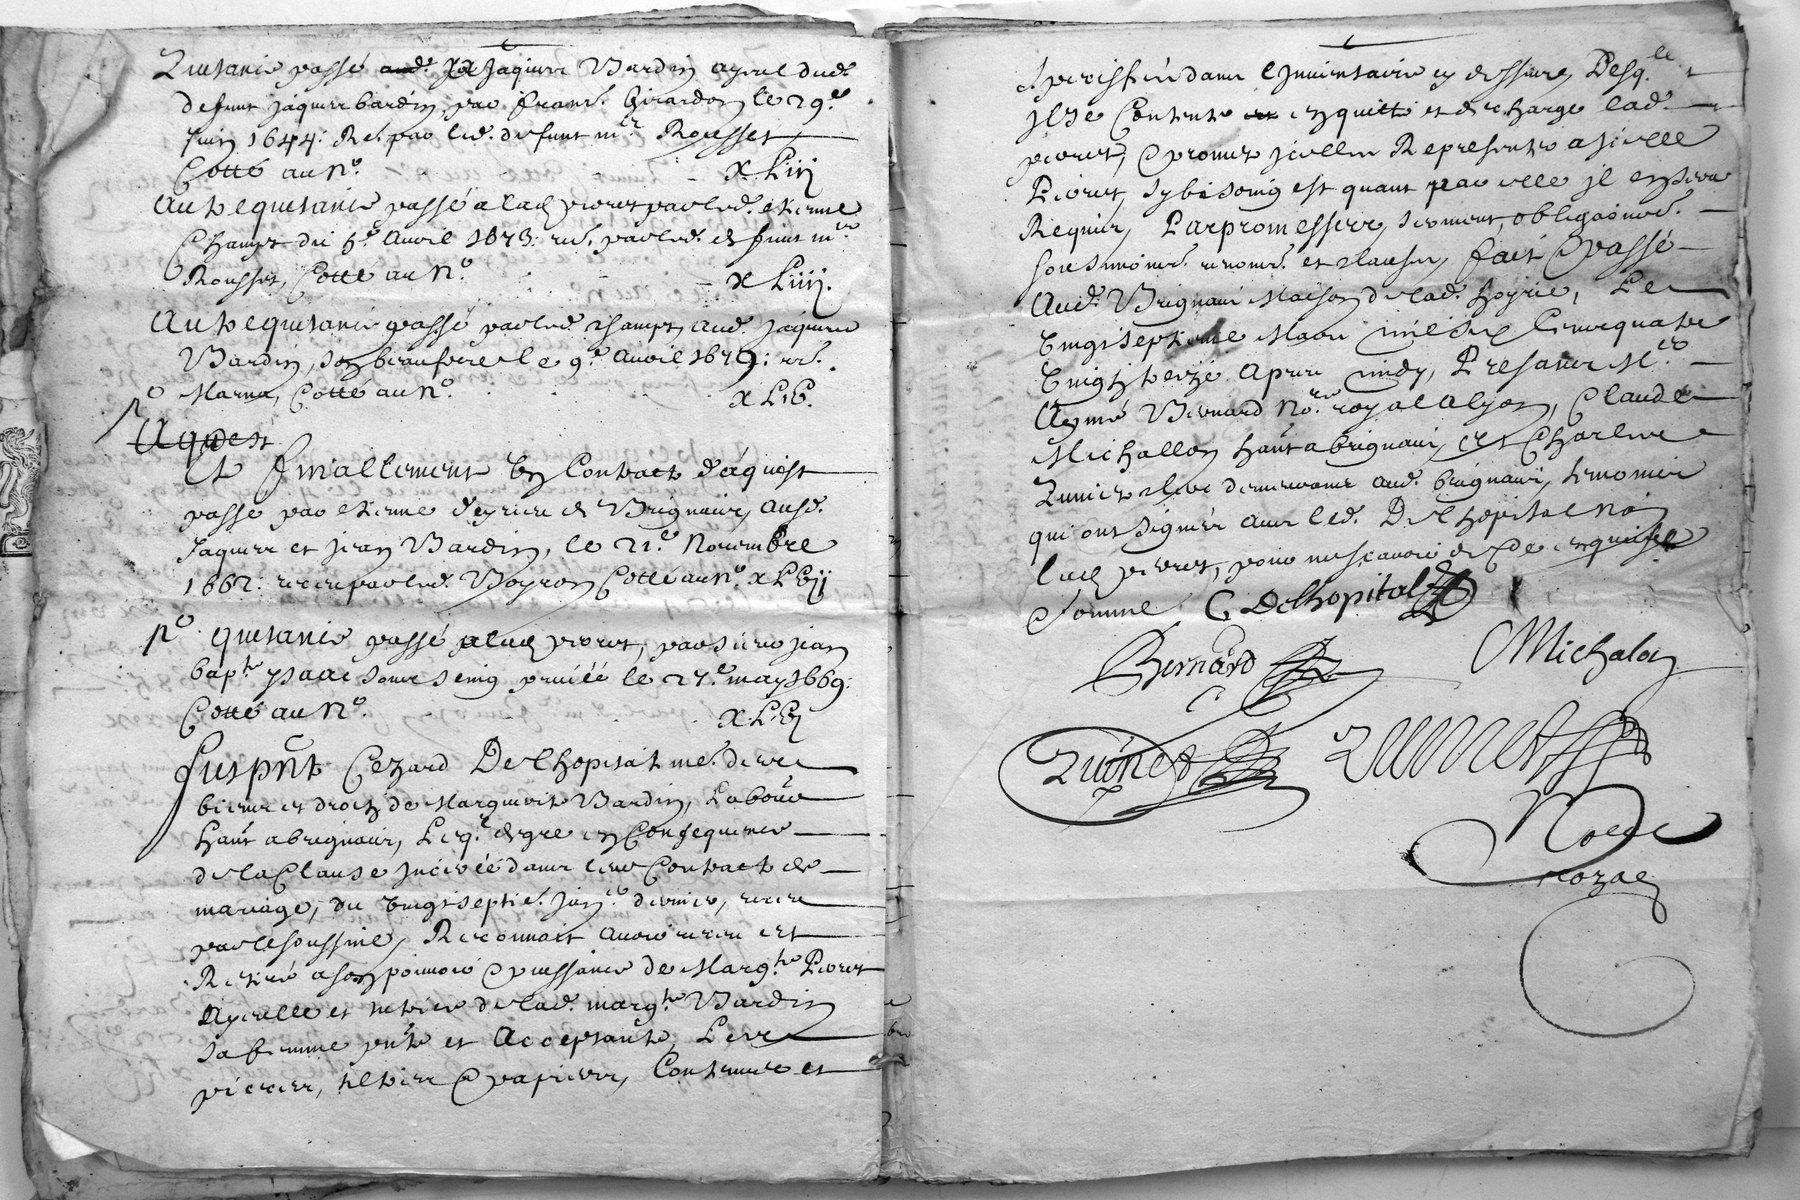 Quitance passé aud. Jaques Bardin ayeul dud.
defunt Jaques bardin par franc. Girardon le 29e
Juin 1644: Re. par led. defunt mr. Rousset
Cotté au No. xLiij
Autre quitance passé a lad. pivret par led. etienne
Champt du 5e Avril 1673: rec. par led. defunt mr.
Rousset, Cotté au No. xLiiij.
Autre quitance passé par led. champt, aud. Jaques
Bardin, son beaufrere le 9e Avril 1679: rec.
Marna, Cotté au No. xLv.
No
Et finallement Un Contract d'aquist
passé par etienne de Brignais, ausd.
Jaques et jean Bardin, le 21e Novembre
1662: receu par led. Voyron Cotté au No. xLvij
No. quitance passé a lad. pivret, par sieur jean
bapte. ysaac sous seing privéé le 27e may 1669:
Cotté au No. xLvj
fust pnt Cezard Delhopital me. des
biens et droits de Marguerite Bardin, Labour
hant a brignais, Leql. de gre en Consequence
de la Clause incérée dans leur Contract de
mariage, du Vingt septie. janer. dernier, receu
par le soussigné, Reconnait avoir receu et
Retiré a son pouvoir & puissance de Margte. Pivret
Ayeulle et tutrice de lad. margte. Bardin
sa femme pnte et Acceptante, Les
pieces, tiltres & papiers, Contenus et
specissfié dans l'Inventaire cy dessus, Desqls.
il se Contente en quitte et decharge lad.
pivret, & promet icelles Representer a icelle
Pivret, sy besoing est quant par elle il en sera
Requis, Par promesses, serment, obligaon.
soumions. renons. et clauses, fait & passé
Aud. Brignais Maison de lad. hoyrie, Le
Vingt septieme Mars mil six Cens quatre
Vingt treize Apres midy, Presans Mr.
Aymé Bernard Nore. royal a lyon, Claude
Michallon hant a brignais, et Charles
Zunier clerc demeurant aud. brignais, temoins
qui ont signés avec led. Delhopital non
lad. pivret, pour ne scavoir de ce enquise
Somme C Delhopital
Bernard Michalon